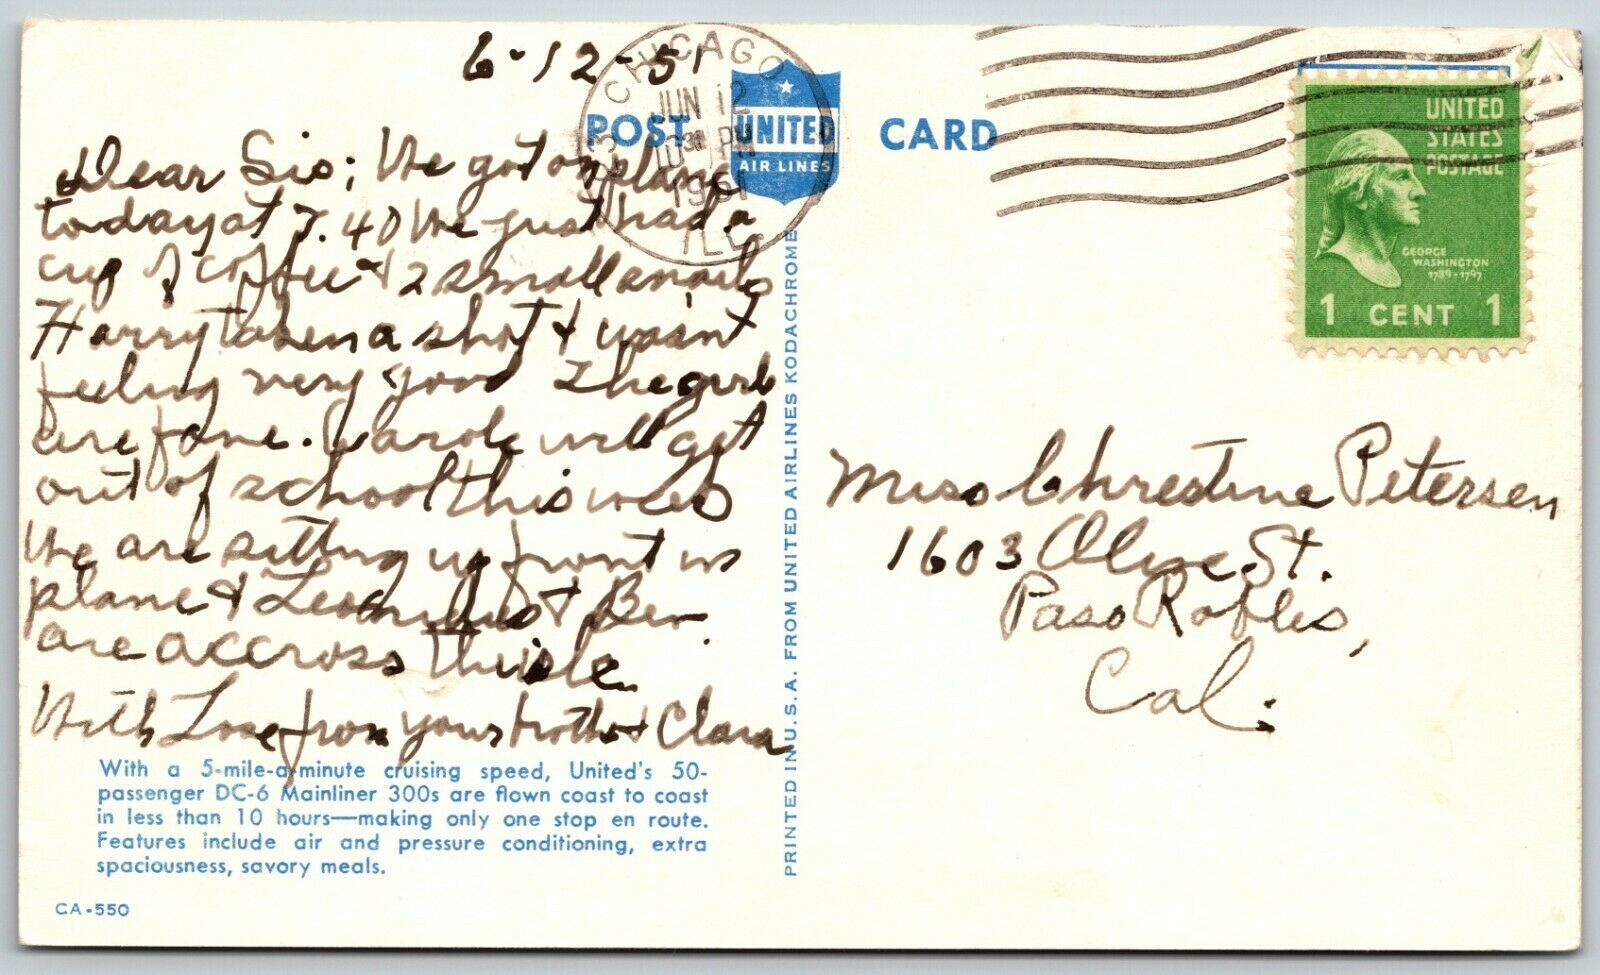 6-12-51
CHICAGO
JUN 12
10 30 PM
1951
ILL.
POST CARD
UNITED
AIR LINES
UNITED
STATES
POSTAGE
GEORGE
WASHINGTON
1789-1797
1 CENT 1
Dear Sis; We got on plane
today at 7.40 We just had a
cup of coffee & 2 small snails
Harry taken a shot & wasn't
feeling very good The girls
are fine. Carole will get
out of school this week
We are sitting up front in
plane & & Ben
are accross the isle.
With Love from your brother & Clara
Miss Christine Petersen
1603 Olive St.
Paso Robles,
Cal.
With a 5-mile-a-minute cruising speed, United's 50-
passenger DC-6 Mainliner 300s are flown coast to coast
in less than 10 hours—making only one stop en route.
Features include air and pressure conditioning, extra
spaciousness, savory meals.
CA-550
PRINTED IN U.S.A. FROM UNITED AIRLINES KODACHROME